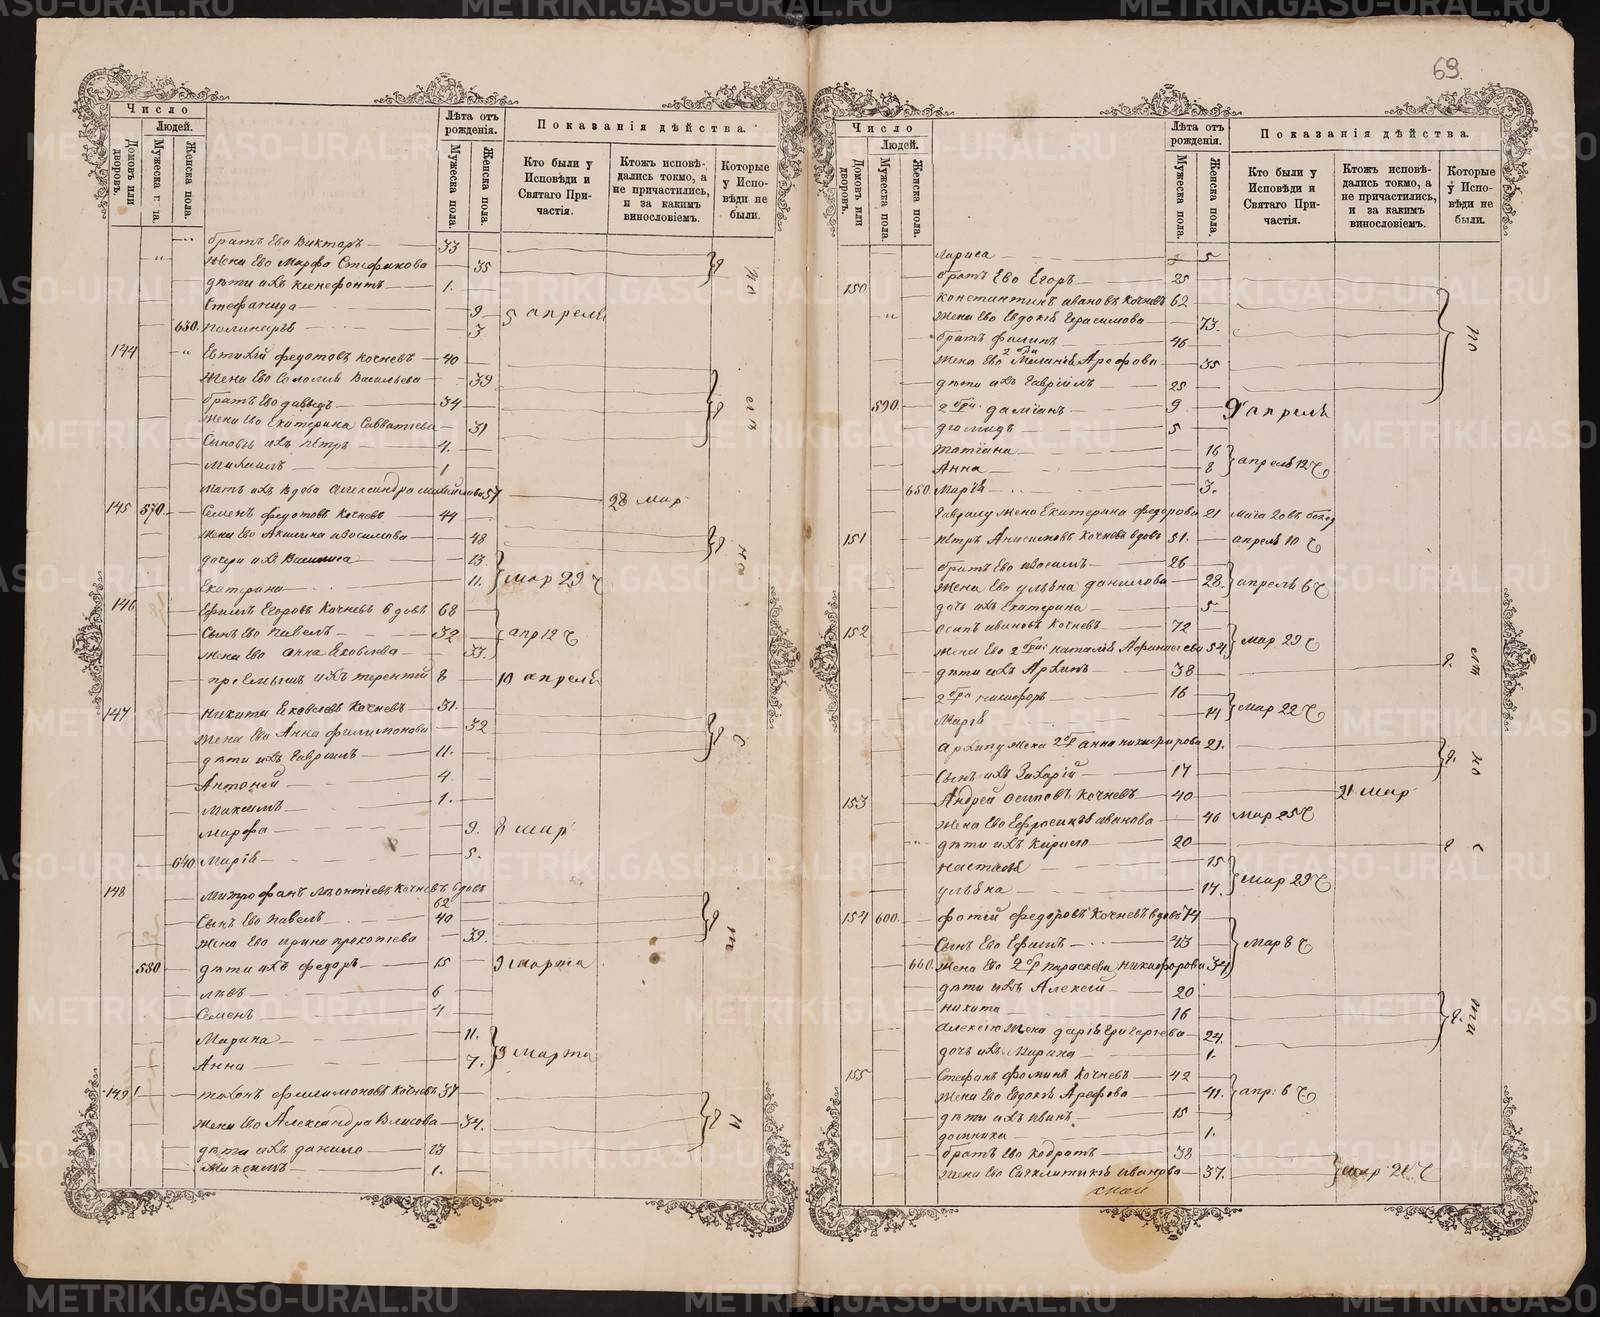 69.
Число
Людей.
Домовъ или дворовъ.
Мужеска пола.
Женска пола.
Лѣта отъ рожденія.
Мужеска пола.
Женска пола.
Показанія дѣйства.
Кто были у Исповѣди и Святаго Причастія.
Ктожъ исповѣдались токмо, а не причастились, и за какимъ винословіемъ.
Которые у Исповѣди не были.
братъ Ево Виктаръ 33
жена Ево Марфа Стефанова 35
дѣти ихъ Ксенефонтъ 1.
Стефанида 9 5 апреля
630. 3
144 Евтихій федотовъ Кочневъ 40
жена Ево Соломія Васильева 39
братъ Ево давыдъ 34
жена Ево Екатерина Савватиева 31
Сыновья ихъ пѣтръ 4.
Михаилъ 1
мать ихъ вдова Александра 57 28 мар
145 570. Семенъ федотовъ Кочневъ 44
жена Ево Акилина 48
дочери ихъ Василиса 13
Екатерина 11. мар 29 ч
146 Ефимъ Егоровъ Кочневъ вдовъ 68
Сынъ Ево павелъ 32 апр 12 ч
жена Ево Анна Яковлева 33.
ихъ терентий 8 10 апреля
147 никита Яковлевъ Кочневъ 31.
жена Ево Анна филимонова 32
дѣти ихъ Гавриилъ 11.
Антоній 4
Максимъ 1.
марфа 9. 8 мар
640. Марія 5.
148 митрофанъ леонтіевъ Кочневъ вдовъ 62
Сынъ Ево павелъ 40
жена Ево ирина прокопіева 39.
580. дѣти ихъ федоръ 15 9 марта
львъ 6
Семенъ 4
Марина 11.
Анна 7. 9 марта
149 тихонъ филимоновъ Кочневъ 37
жена Ево Александра Власова 34.
дѣти ихъ данило 13
Максимъ 1.
Число
Людей.
Домовъ или дворовъ.
Мужеска пола.
Женска пола.
Лѣта отъ рожденія.
Мужеска пола.
Женска пола.
Показанія дѣйства.
Кто были у Исповѣди и Святаго Причастія.
Ктожъ исповѣдались токмо, а не причастились, и за какимъ винословіемъ.
Которые у Исповѣди не были.
лариса 5
братъ Ево Егоръ 25
150 константинъ ивановъ Кочневъ 62
жена Ево Евдокія Герасимова 73.
братъ филипъ 46
жена Ево 2 бра Меланія Арефова 35
дѣти ихъ Гавріилъ 25
590. 2 бра даміанъ 9 9 апреля
диомидъ 5
татіана 16
Анна 8 апреля 12 ч
650 Марія 3.
Гаврилу жена Екатерина федорова 21
151 пѣтръ Анисимовъ Кочневъ вдовъ 51. апреля 10 ч
братъ Ево 26
жена Ево ульяна данилова 28. апрелъ 6 ч
дочь ихъ Екатерина 5
152 Осипъ ивановъ Кочневъ 72
жена Ево 2 бра наталія 54. мар 29 ч
дѣти ихъ Архипъ 38
2 бра никифоръ 16
Марія 14 мар 22 ч
Архипу жена 2 бр анна никифорова 21.
Сынъ ихъ Захарій 17
153 Андрей осиповъ Кочневъ 40 21 мар
жена Ево Ефросинія иванова 46 мар 25 ч
дѣти ихъ кирило 20
настасья 15
ульяна 14. мар 29 ч
154 600. фотій федоровъ Кочневъ вдовъ 74
Сынъ Ево Ефимъ 43 мар 8 ч
660. жена Ево 2 бр параскева никифорова 34
дѣти ихъ Алексей 20
никита 16
Алексію жена дарія Григорьева 24.
дочь ихъ Марина 1.
155 Стефанъ фоминъ Кочневъ 42
жена Ево Евдокія Арефова 41. апр: 6 ч
дѣти ихъ иванъ 15
домника 1.
братъ Ево кодратъ 38
жена Ево Синклитикія иванова 37. мар 21 ч